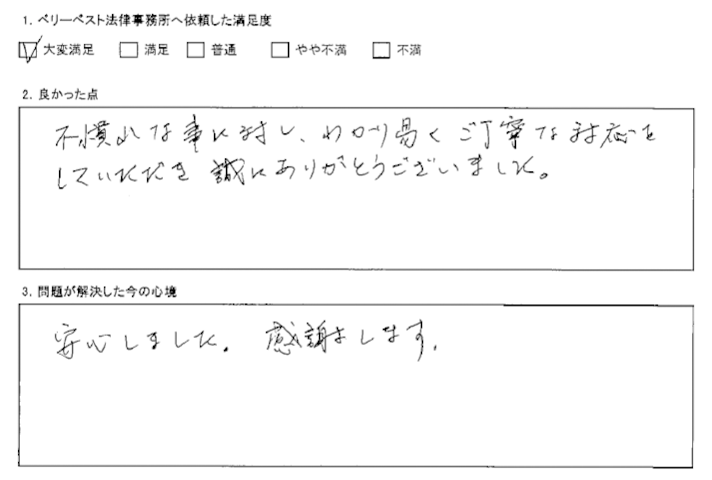 1. ベリーベスト法律事務所へ依頼した満足度
☑ 大変満足 □ 満足 □ 普通 □ やや不満 □ 不満
2. 良かった点
不慣れな事に対し、わかり易くご丁寧な対応を
していただき誠にありがとうございました。
3. 問題が解決した今の心境
安心しました。感謝します。